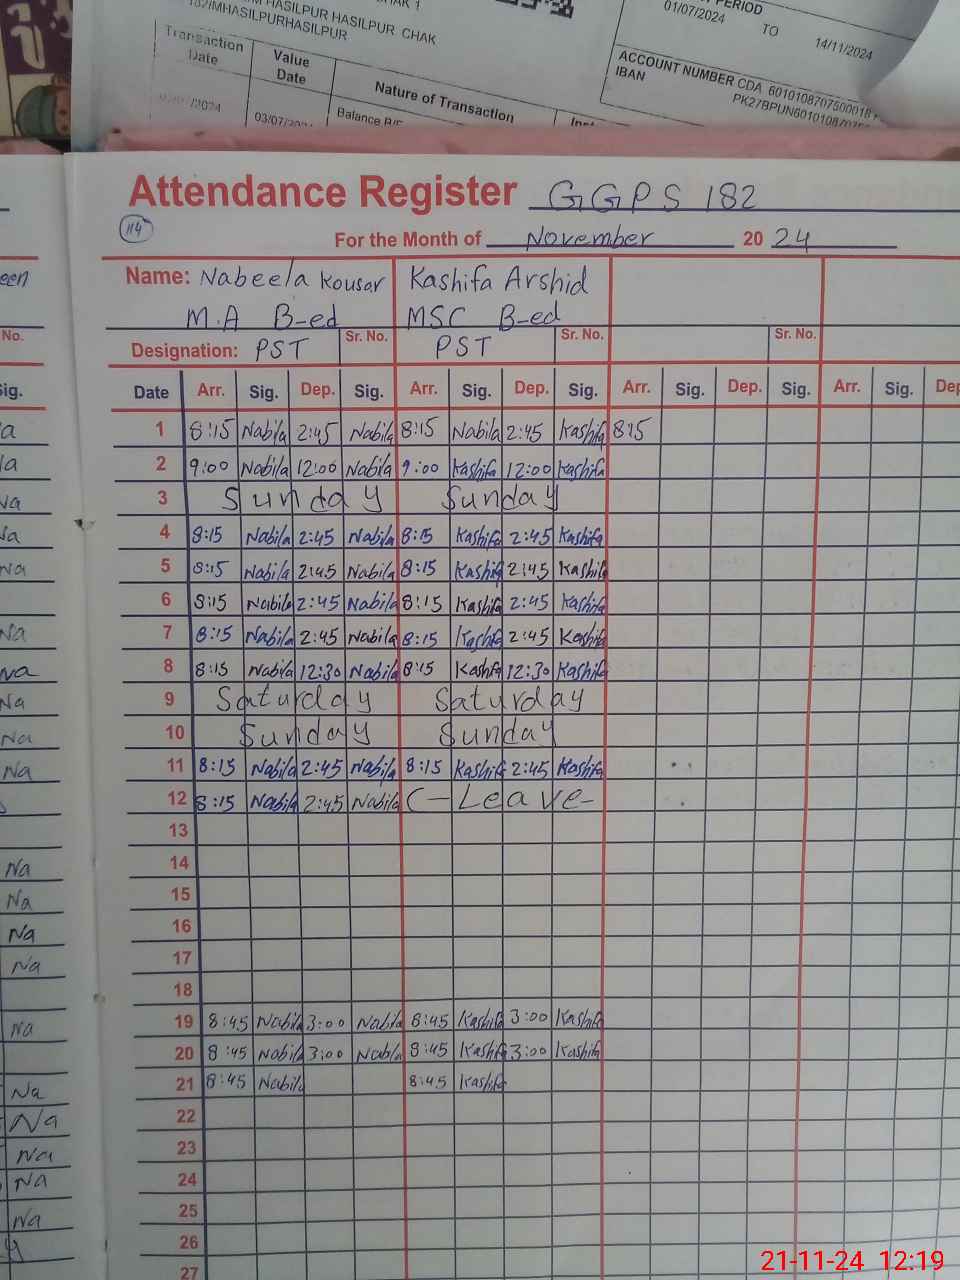 HASILPUR HASILPUR CHAK
182/MHASILPURHASILPUR
PERIOD
01/07/2024 TO 14/11/2024
ACCOUNT NUMBER CDA
IBAN
Transaction Date Value Date Nature of Transaction
03/07/ Balance B/F
Attendance Register GGPS 182
114
For the Month of November 2024
Name: Nabeela Kousar Kashifa Arshid
M.A B-ed MSC B-ed
Sr. No. Sr. No. Sr. No.
Designation: PST PST
Date Arr. Sig. Dep. Sig. Arr. Sig. Dep. Sig. Arr. Sig. Dep. Sig. Arr. Sig. Dep
1 8:15 Nabila 2:45 Nabila 8:15 Nabila 2:45 Kashifa 8:15
2 9:00 Nabila 12:00 Nabila 9:00 Kashifa 12:00 Kashifa
3 Sunday Sunday
4 8:15 Nabila 2:45 Nabila 8:15 Kashifa 2:45 Kashifa
5 8:15 Nabila 2:45 Nabila 8:15 Kashifa 2:45 Kashifa
6 8:15 Nabila 2:45 Nabila 8:15 Kashifa 2:45 Kashifa
7 8:15 Nabila 2:45 Nabila 8:15 Kashifa 2:45 Kashifa
8 8:15 Nabila 12:30 Nabila 8:15 Kashifa 12:30 Kashifa
9 Saturday Saturday
10 Sunday Sunday
11 8:15 Nabila 2:45 Nabila 8:15 Kashifa 2:45 Kashifa
12 8:15 Nabila 2:45 Nabila C-Leave-
13
14
15
16
17
18
19 8:45 Nabila 3:00 Nabila 8:45 Kashifa 3:00 Kashifa
20 8:45 Nabila 3:00 Nabila 8:45 Kashifa 3:00 Kashifa
21 8:45 Nabila 8:45 Kashifa
22
23
24
25
26
27
21-11-24 12:19